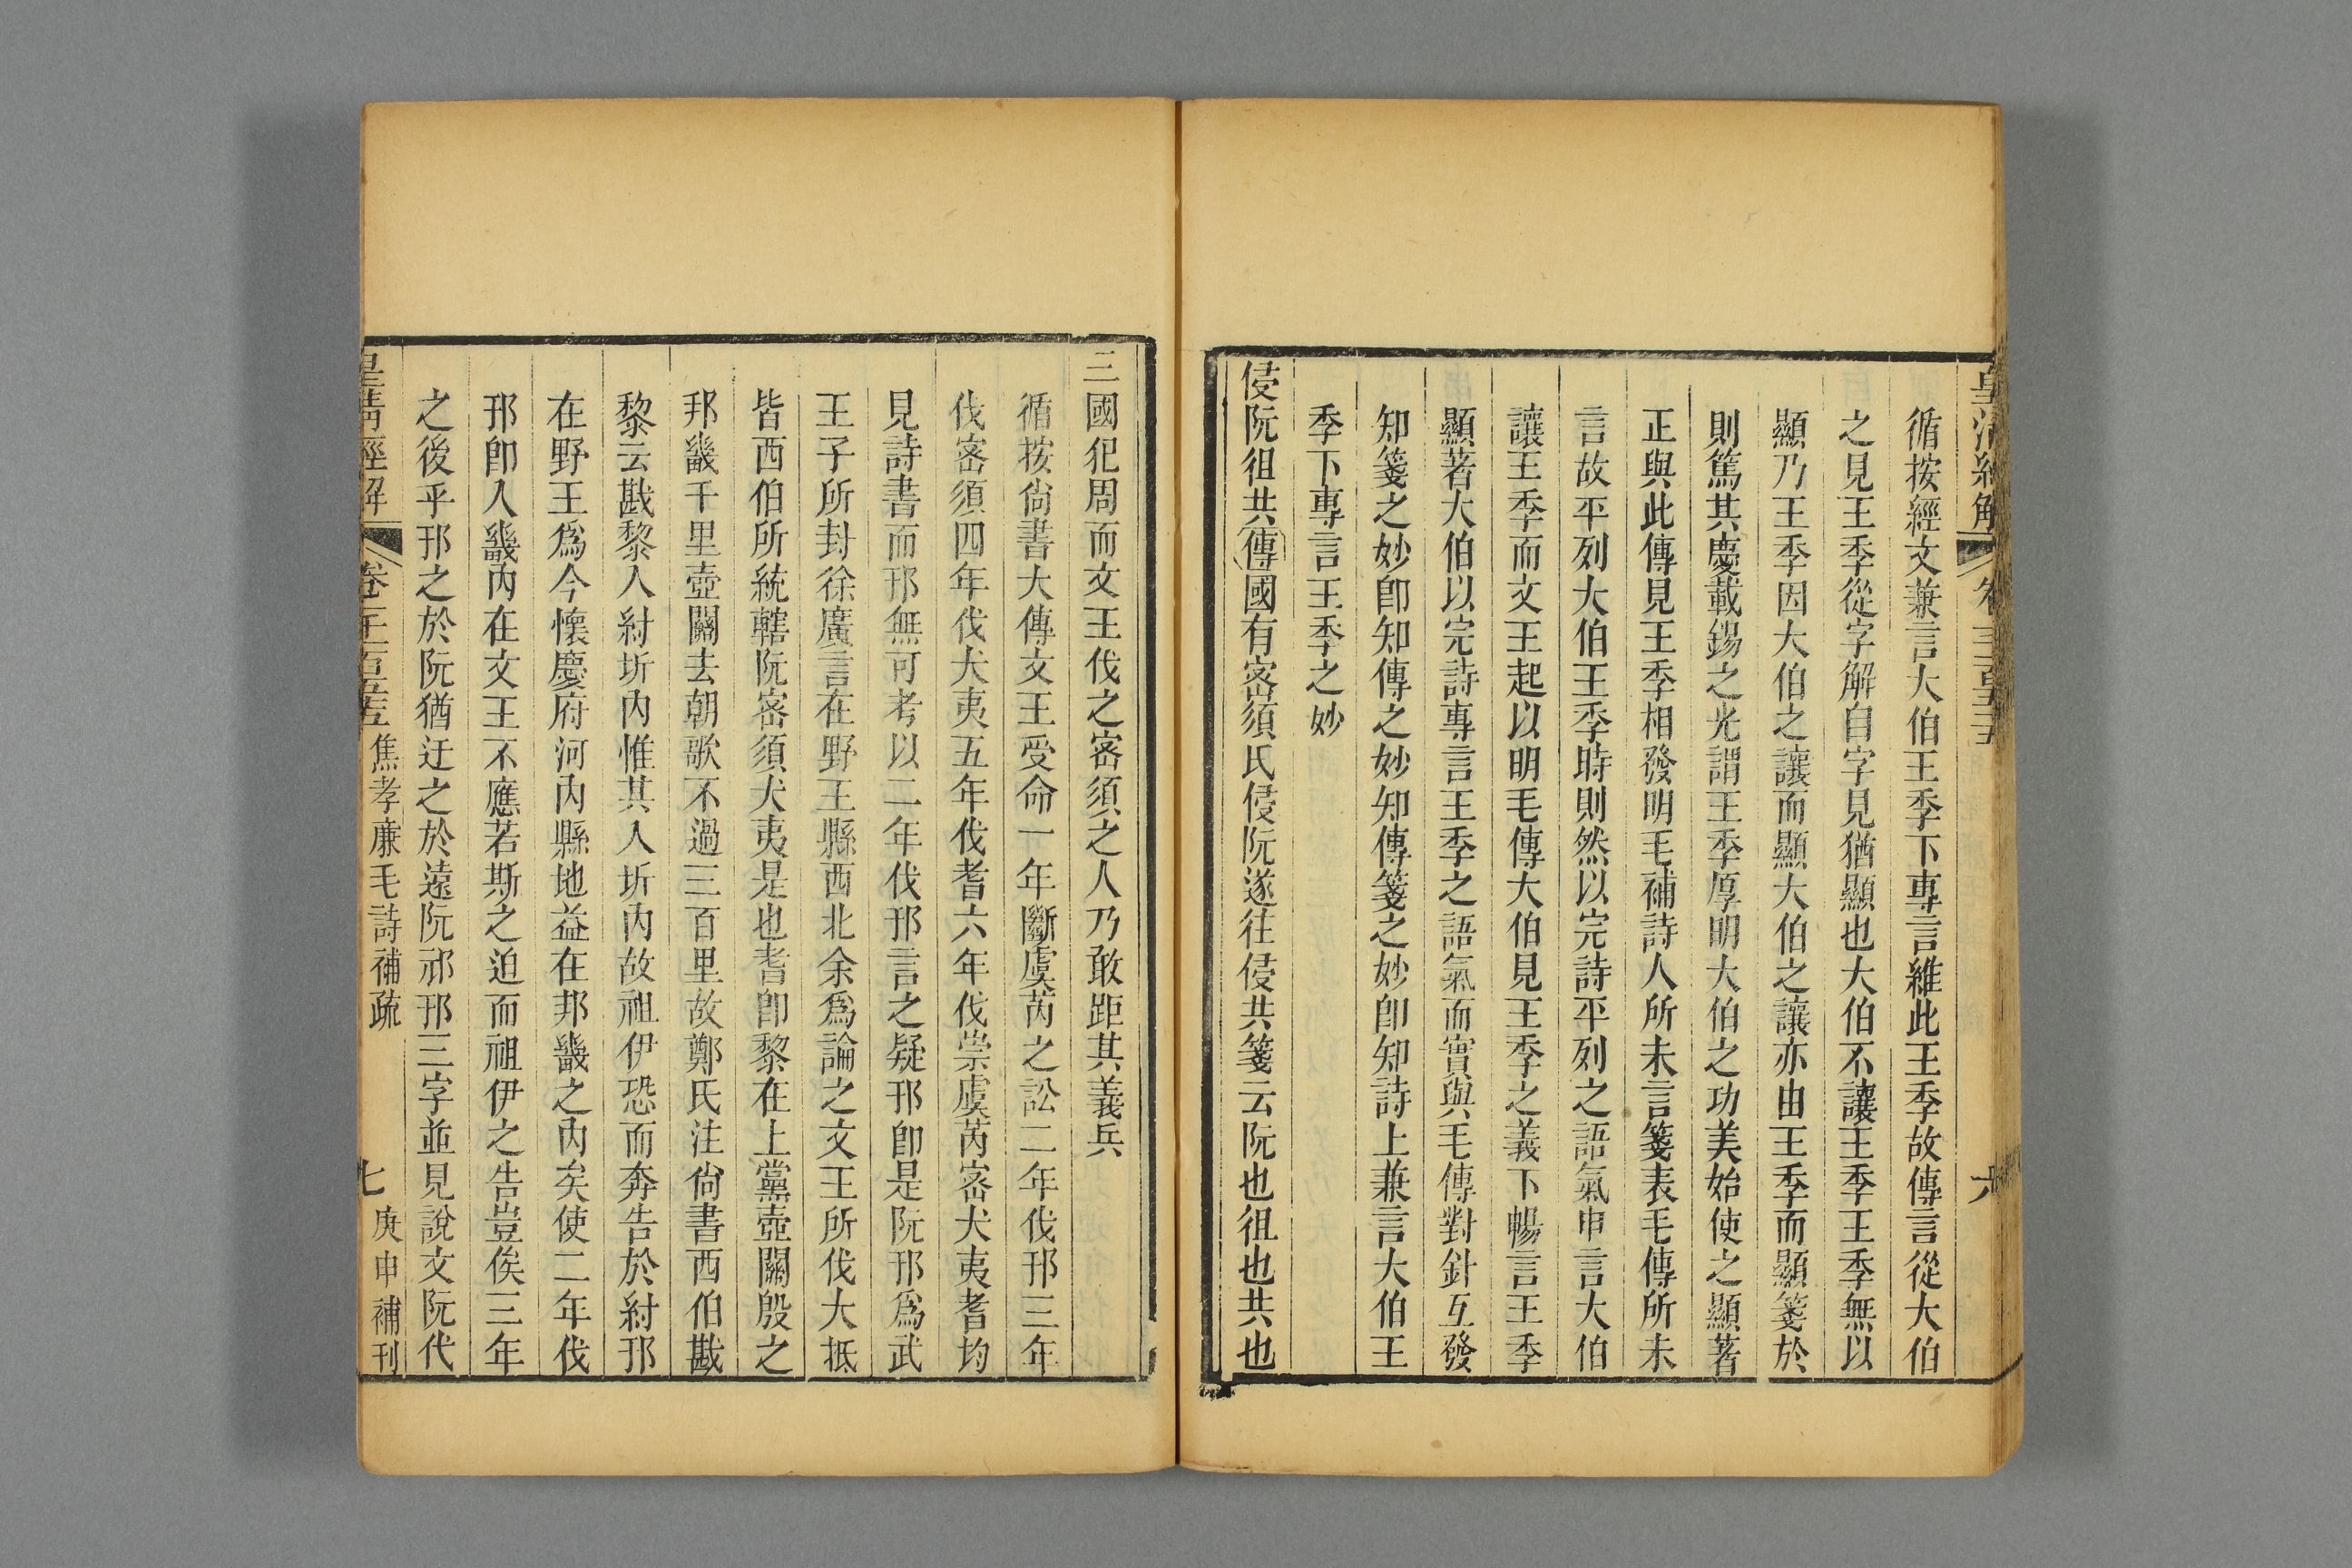 皇清經解
卷一千一百五十五
六
循按經文兼言大伯王季下專言維此王季故傳言從大伯
之見王季從字解自字見猶顯也大伯不讓王季王季無以
顯乃王季因大伯之讓而顯大伯之讓亦由王季而顯箋於
則篤其慶載錫之光謂王季厚明大伯之功美始使之顯著
正與此傳見王季相發明毛補詩人所未言箋表毛傳所未
言故平列大伯王季時則然以完詩平列之語氣申言大伯
讓王季而文王起以明毛傳大伯見王季之義下暢言王季
顯著大伯以完詩專言王季之語氣而實與毛傳對針互發
知箋之妙卽知傳之妙知傳箋之妙卽知詩上兼言大伯王
季下專言王季之妙
侵阮徂共傳國有密須氏侵阮遂往侵共箋云阮也徂也共也
三國犯周而文王伐之密須之人乃敢距其義兵
循按尙書大傳文王受命一年斷虞芮之訟二年伐邘三年
伐密須四年伐犬夷五年伐耆六年伐崇虞芮密犬夷耆均
見詩書而邘無可考以二年伐邘言之疑邘卽是阮邘爲武
王子所封徐廣言在野王縣西北余爲論之文王所伐大抵
皆西伯所統轄阮密須犬夷是也耆卽黎在上黨壺關殷之
邦畿千里壺關去朝歌不過三百里故鄭氏注尙書西伯戡
黎云戡黎入紂圻內惟其入圻內故祖伊恐而奔告於紂邘
在野王爲今懷慶府河內縣地益在邦畿之內矣使二年伐
邘卽入畿內在文王不應若斯之迫而祖伊之告豈俟三年
之後乎邘之於阮猶迂之於遠阮祁邘三字並見說文阮代
皇清經解
焦孝廉毛詩補疏
七
庚申補刊